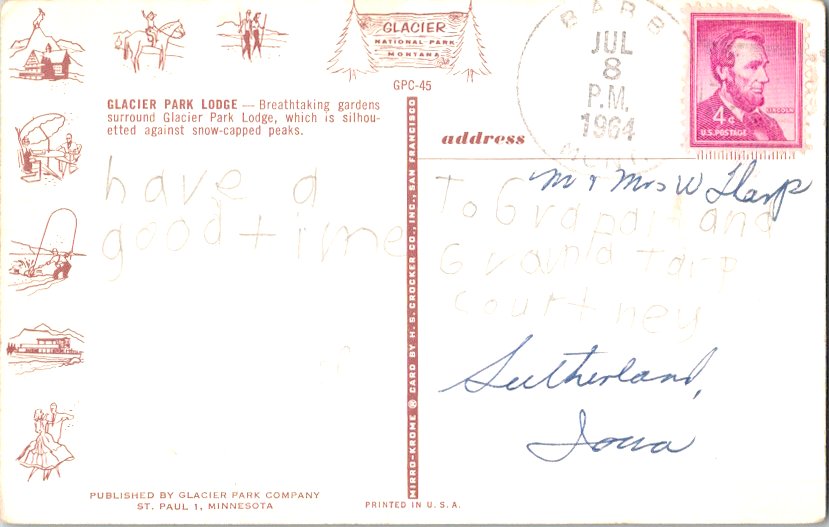 GLACIER
NATIONAL PARK
MONTANA
GPC-45
GLACIER PARK LODGE — Breathtaking gardens
surround Glacier Park Lodge, which is silhou-
etted against snow-capped peaks.
have a
good time
PUBLISHED BY GLACIER PARK COMPANY
ST. PAUL 1, MINNESOTA
MIRRO-KROME ® CARD BY H. S. CROCKER CO., INC., SAN FRANCISCO
PRINTED IN U. S. A.
BABB
JUL
8
P.M.
1964
MONT.
LINCOLN
4¢
U.S. POSTAGE
address
Mr & Mrs W Tharp
To Grapait and
Grampa tarp
courtney
Sutherland,
Iowa